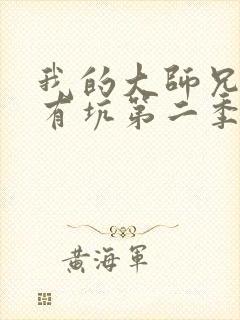 我的大師兄
有坑第二季
黃海軍